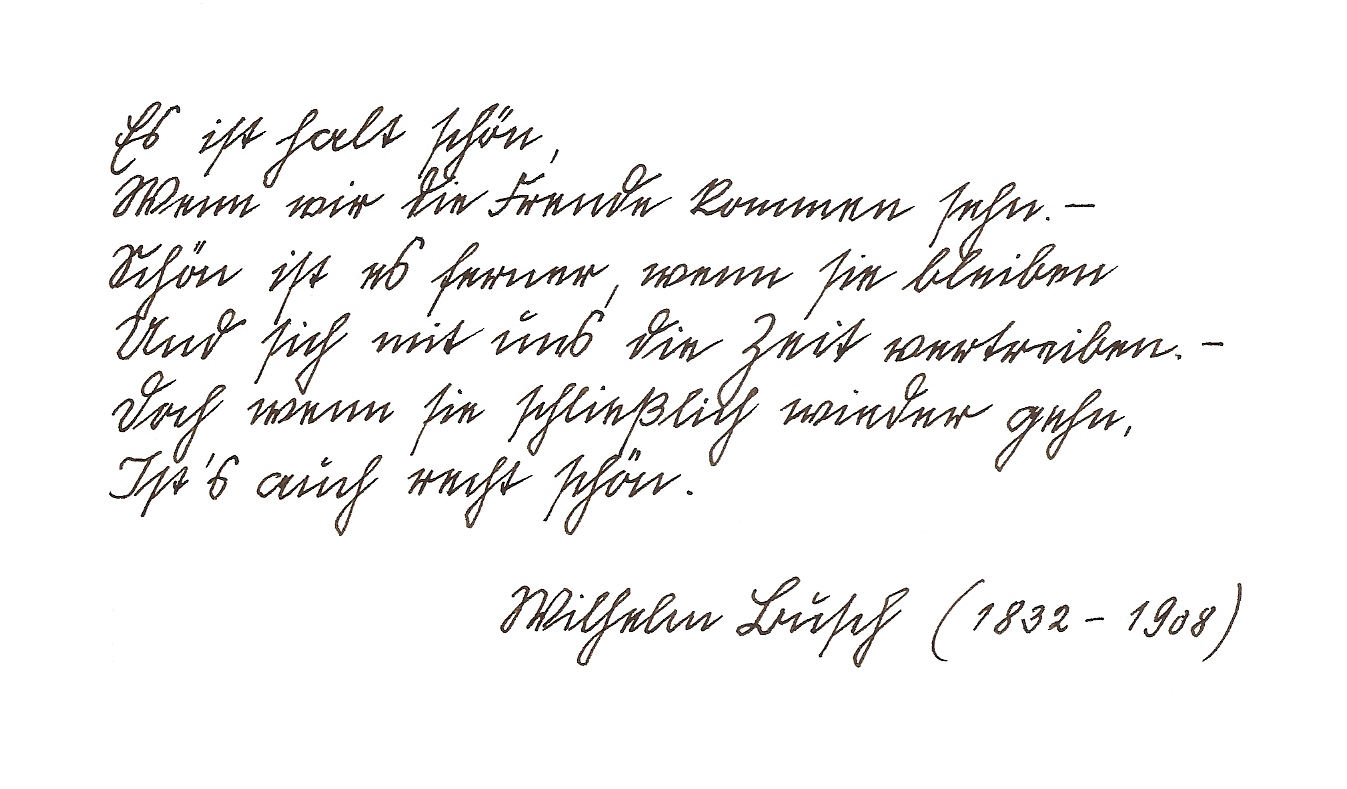 Es ist halt schön,
Wenn wir die Freunde kommen sehn. –
Schön ist es ferner, wenn sie bleiben
Und sich mit uns die Zeit vertreiben. –
Doch wenn sie schließlich wieder gehn,
Ist's auch recht schön.
Wilhelm Busch (1832 – 1908)